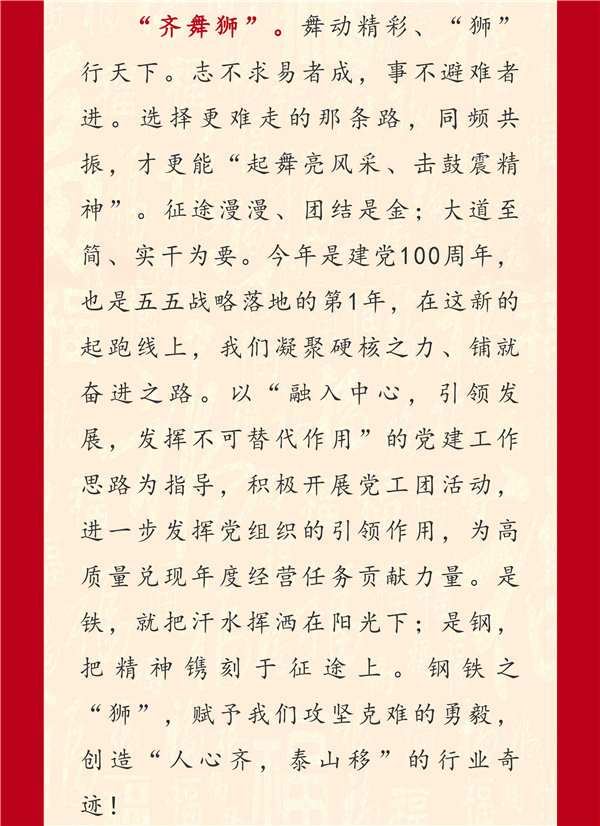 “齐舞狮”。舞动精彩、“狮”
行天下。志不求易者成，事不避难者
进。选择更难走的那条路，同频共
振，才更能“起舞亮风采、击鼓震精
神”。征途漫漫、团结是金；大道至
简、实干为要。今年是建党100周年，
也是五五战略落地的第1年，在这新的
起跑线上，我们凝聚硬核之力、铺就
奋进之路。以“融入中心，引领发
展，发挥不可替代作用”的党建工作
思路为指导，积极开展党工团活动，
进一步发挥党组织的引领作用，为高
质量兑现年度经营任务贡献力量。是
铁，就把汗水挥洒在阳光下；是钢，
把精神镌刻于征途上。钢铁之
“狮”，赋予我们攻坚克难的勇毅，
创造“人心齐，泰山移”的行业奇
迹！